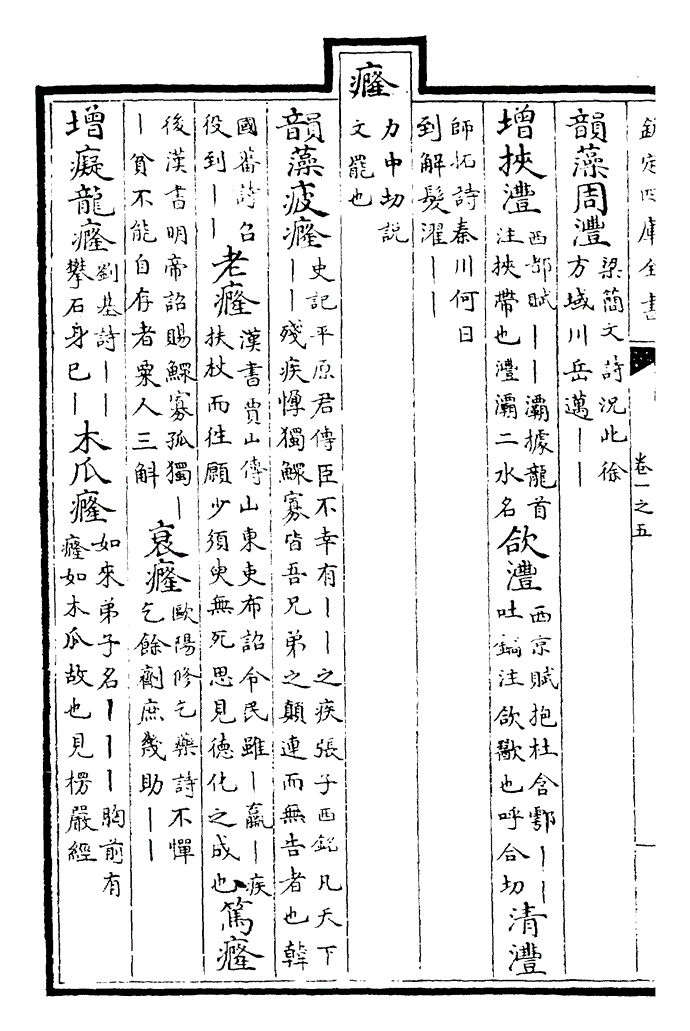 欽定四庫全書 卷一之五 一
韻藻周灃 梁簡文詩況此徐
方域川岳邁｜｜
增挾灃 西都賦｜｜灞據龍首
注挾帶也灃灞二水名
欱灃 西京賦抱杜含鄠｜｜
吐鎬注欱歠也呼合切
清灃
師拓詩秦川何日
到解髮濯｜｜
癃 力中切説
文罷也
韻藻疲癃 史記平原君傳臣不幸有｜｜之疾張子西銘凡天下
｜｜殘疾惸獨鰥寡皆吾兄弟之顛連而無告者也韓
國蕃詩召
役到｜｜
老癃 漢書賈山傳山東吏布詔令民雖｜羸｜疾
扶杖而往願少須臾無死思見德化之成也
篤癃
後漢書明帝詔賜鰥寡孤獨｜
｜貧不能自存者粟人三斛
衰癃 歐陽修乞藥詩不憚
乞餘劑庶幾助｜｜
增癡龍癃 劉基詩｜｜
攀石身已｜
木瓜癃 如來弟子名｜｜｜胸前有
癃如木瓜故也見楞嚴經